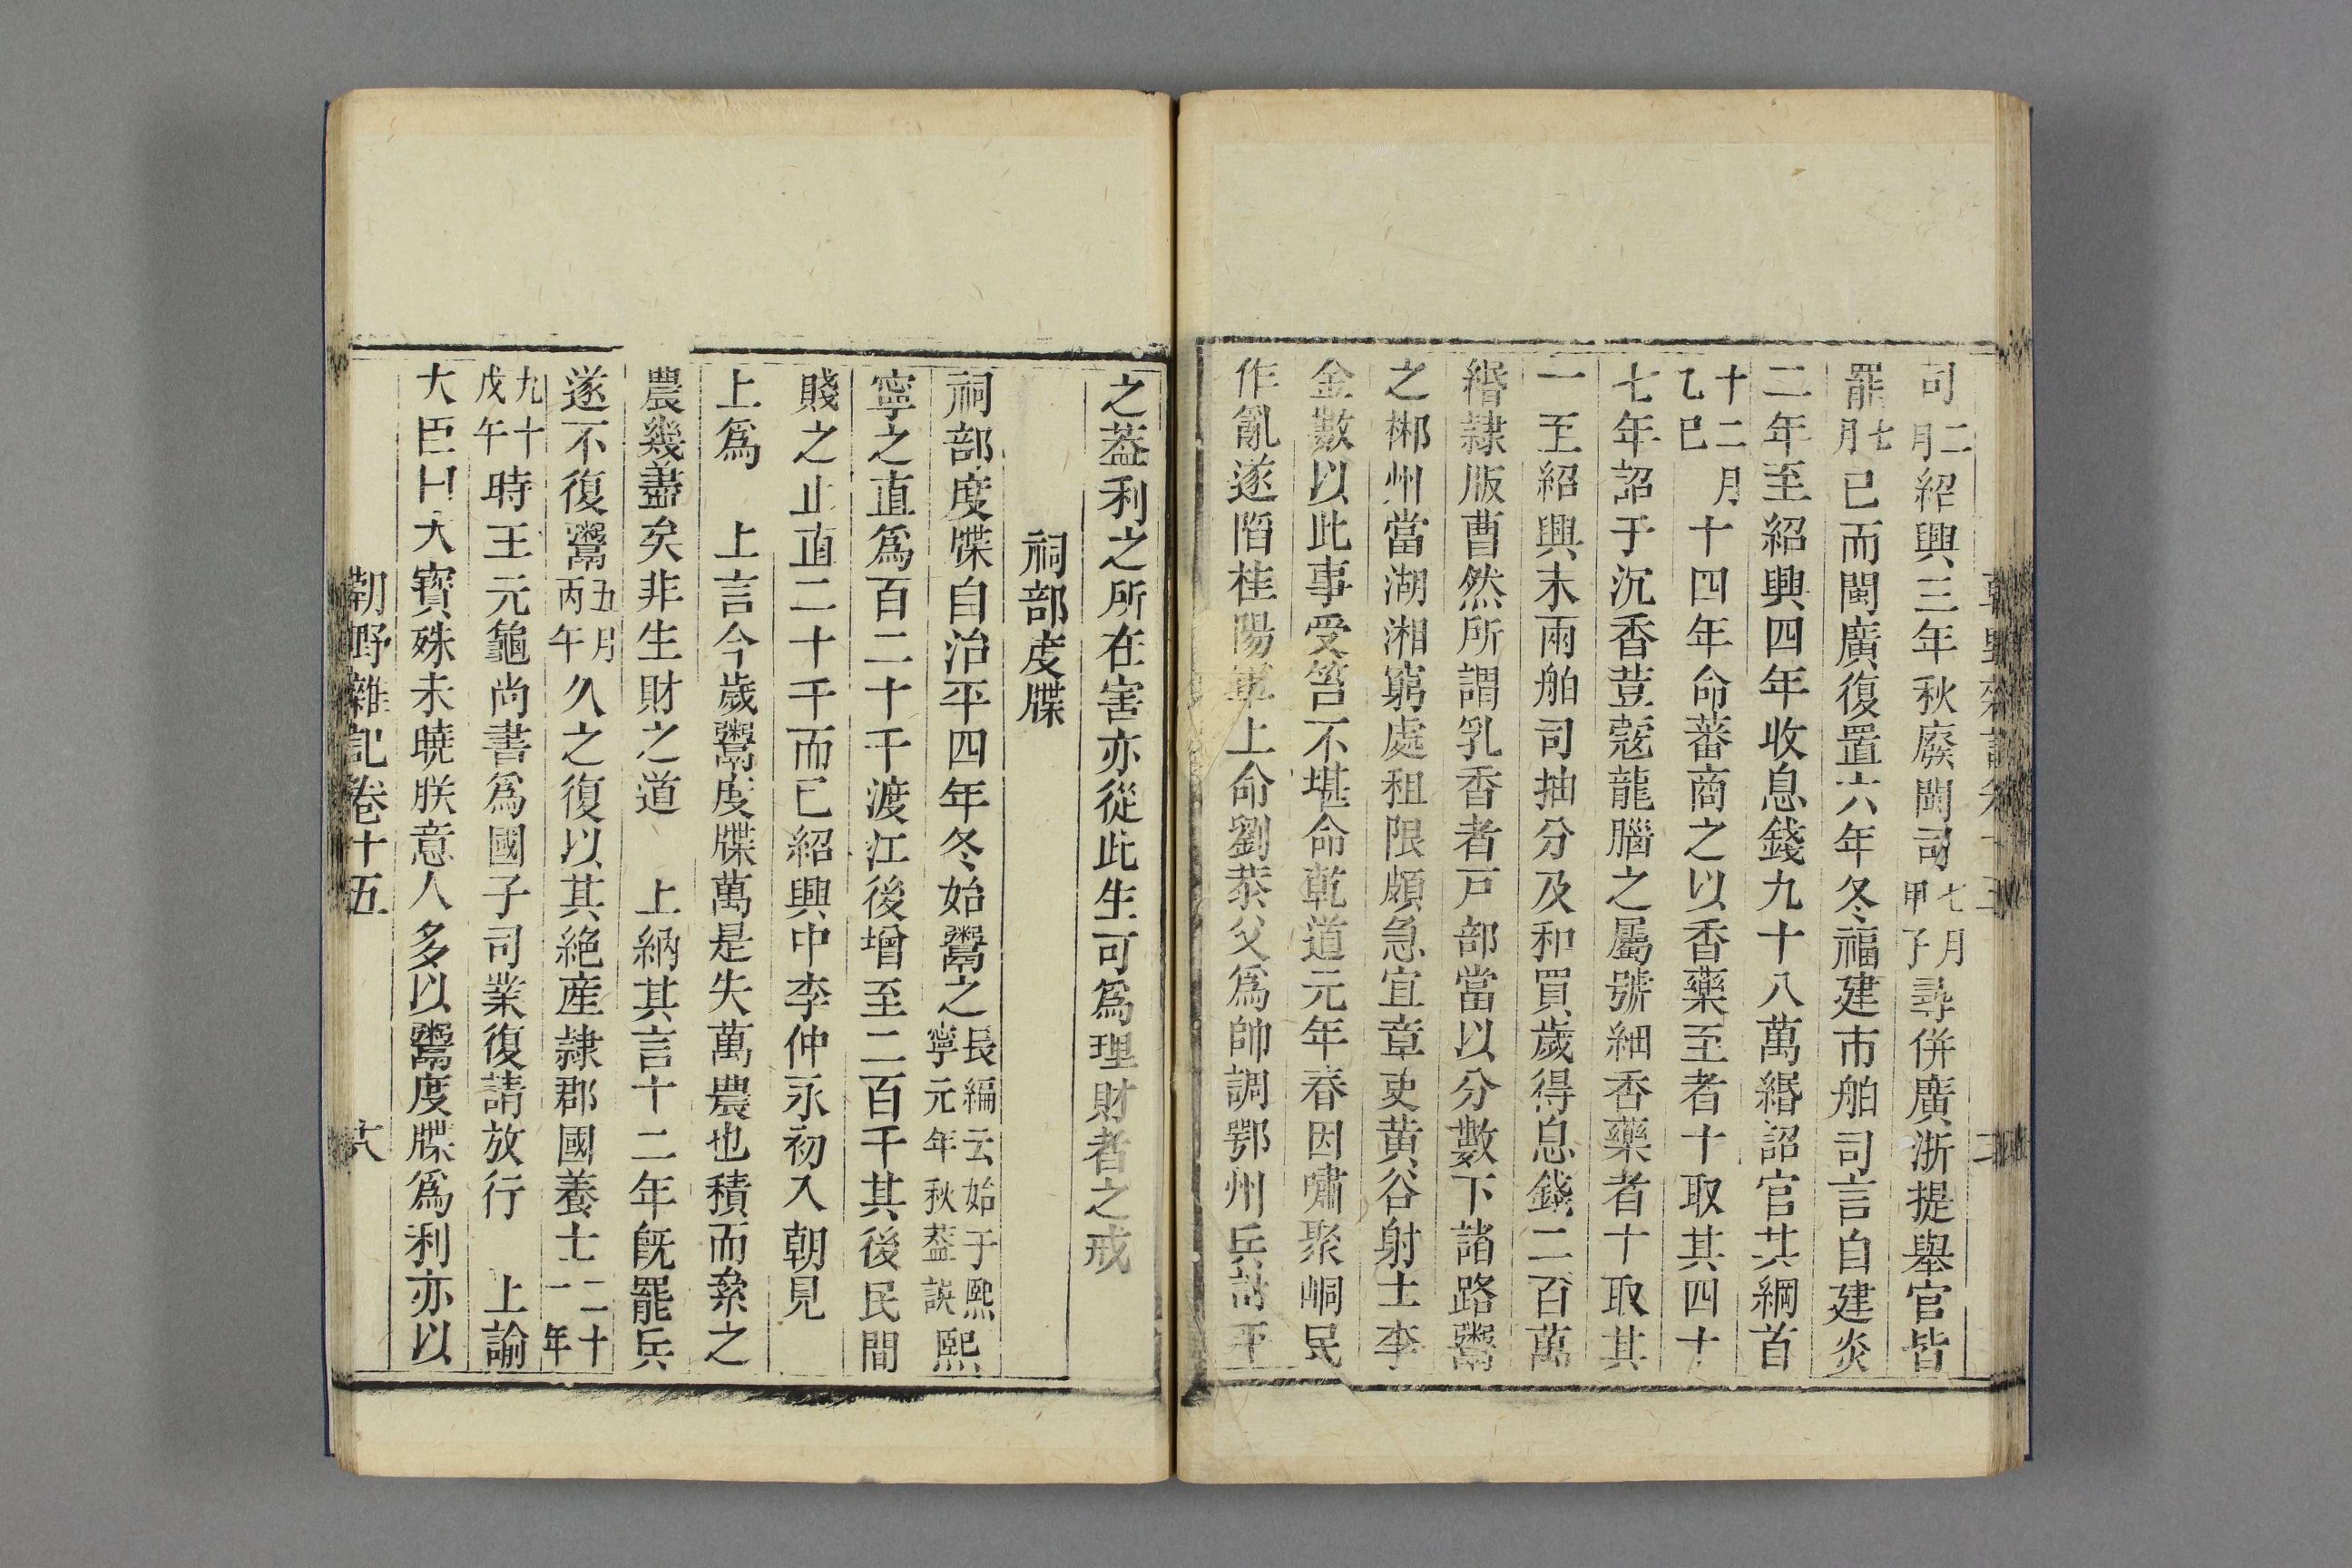 司二月紹興三年秋廢閩司七月甲子尋併廣浙提舉官皆
罷七月已而閩廣復置六年冬福建市舶司言自建炎
二年至紹興四年收息錢九十八萬緡詔官其綱首
十二月乙巳十四年命蕃商之以香藥至者十取其四十
七年詔于沉香荳蔲龍腦之屬號細香藥者十取其
一至紹興末兩舶司抽分及和買歲得息錢二百萬
緡隷版曹然所謂乳香者戸部當以分數下諸路鬻
之郴州當湖湘窮處租限頗急宜章吏黄谷射士李
金數以此事受笞不堪命乾道元年春因嘯聚峒民
作亂遂陷桂陽軍上命劉恭父爲帥調鄂州兵討平
之葢利之所在害亦從此生可爲理財者之戒
祠部度牒
祠部度牒自治平四年冬始鬻之長編云始于熙寧元年秋葢誤熙
寧之直爲百二十千渡江後增至二百千其後民間
賤之止直二十千而已紹興中李仲永初入朝見
上爲 上言今歲鬻度牒萬是失萬農也積而絫之
農幾盡矣非生財之道 上納其言十二年旣罷兵
遂不復鬻五月丙午久之復以其絶産隷郡國養士二十一年
九十戊午時王元龜尚書爲國子司業復請放行 上諭
大臣曰大寳殊未曉朕意人多以鬻度牒爲利亦以
朝野雜記卷十五 六